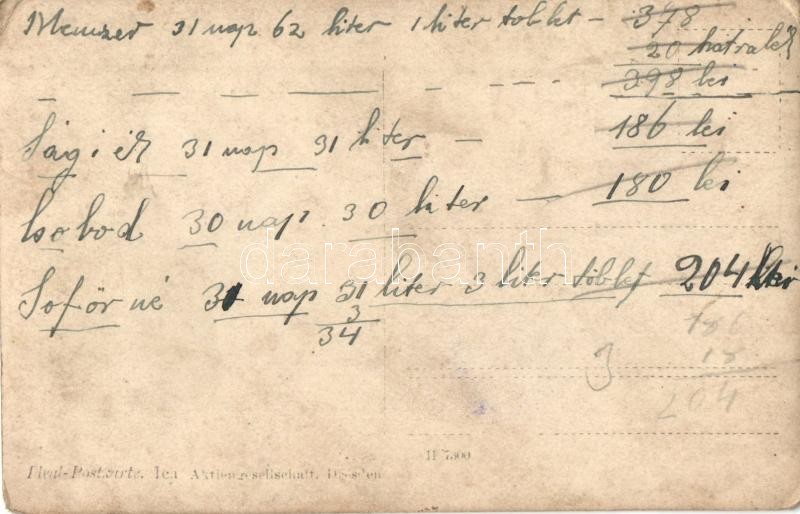 Menzer 31 nap 62 liter 1 liter többlet – 378
20 hátralék
398 lei
Ságiék 31 nap 31 liter – 186 lei
Csobod 30 nap 30 liter – 180 lei
Soförné 31 nap 31 liter 3 liter többlet 204 lei
3
34
186
3 18
204
darabanth.com
Ideal-Postkarte. Ica Aktiengesellschaft. Dresden
H 7300